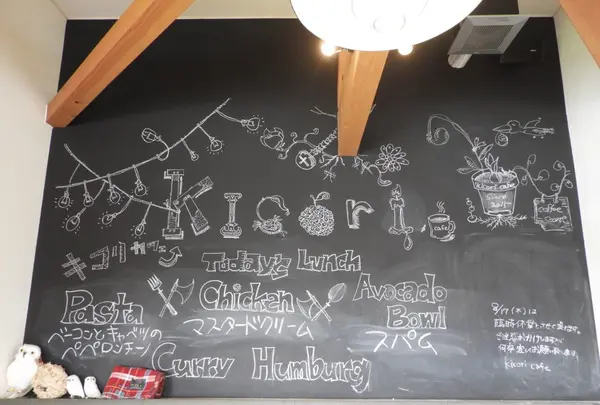 Kikori
cafe
kikori cafe
Since
coffee
キコリ カフェ
Today's Lunch
Pasta
ベーコンとキャベツの
ペペロンチーノ
Chicken
マスタードクリーム
Avocado
Bowl
スパム
Curry Humburg
臨時休業とさせて頂きます。
ご迷惑おかけしますが
何卒宜しくお願い致します。
kikori cafe